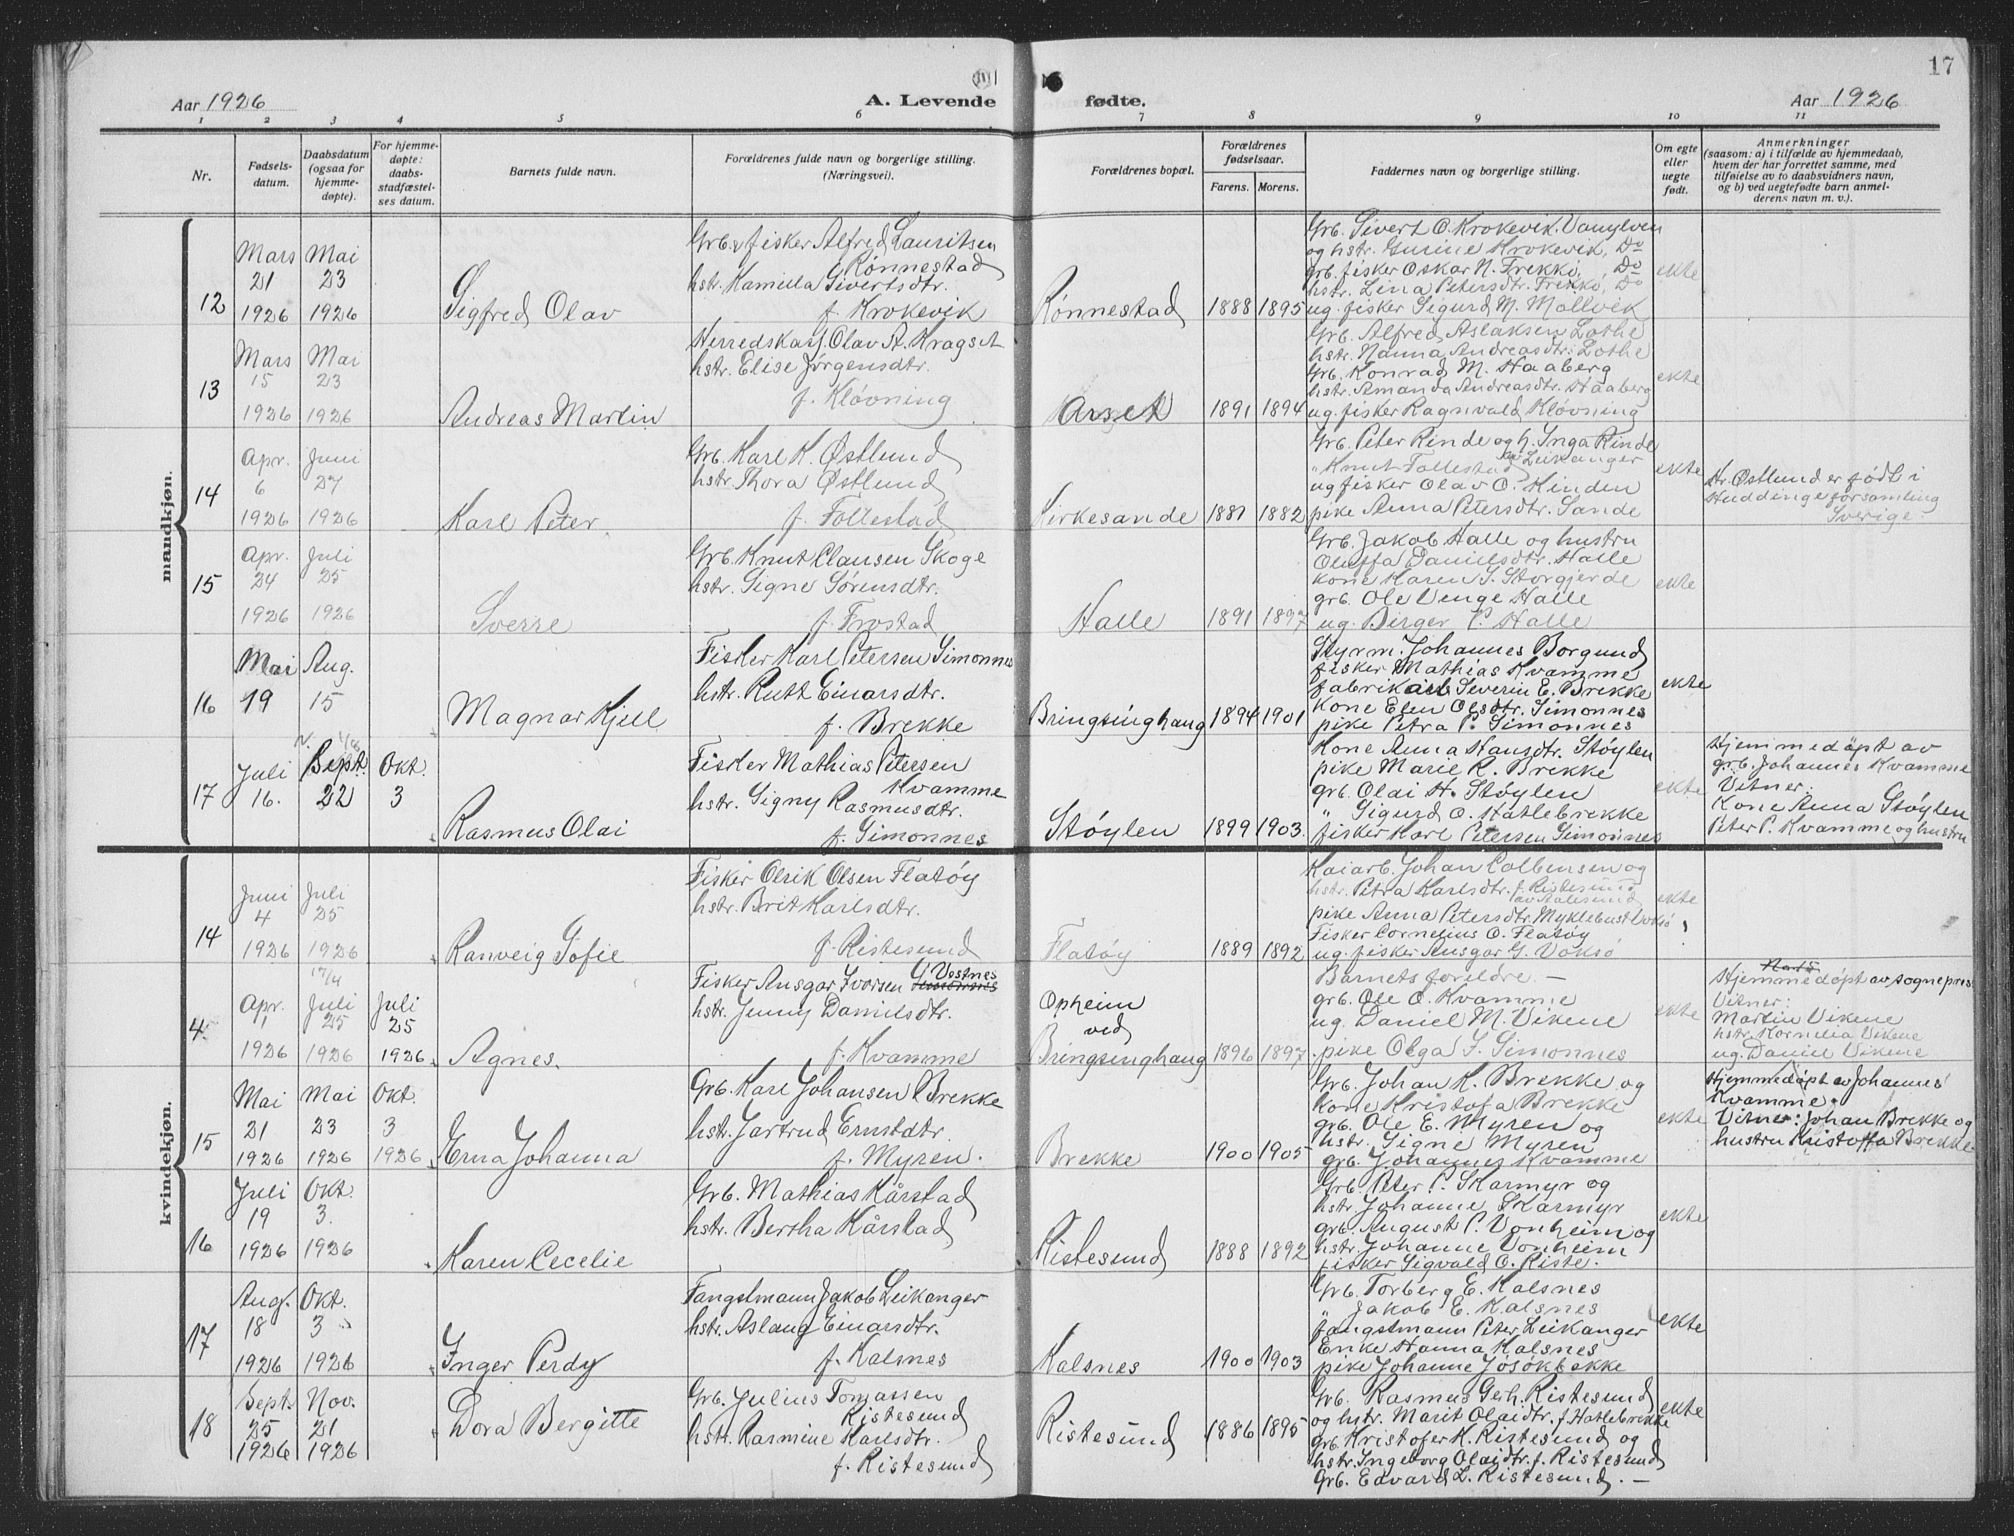 17
Aar 1926
A. Levende
fødte.
Aar 1926
1 2 3 4 5 6 7 8 9 10 11
Nr.
Fødsels-
datum.
Daabsdatum
(ogsaa for
hjemme-
døpte).
For hjemme-
døpte:
daabs-
stadfæstel-
ses datum.
Barnets fulde navn.
Forældrenes fulde navn og borgerlige stilling.
(Næringsvei).
Forældrenes bopæl.
Forældrenes
fødselsaar.
Farens. Morens.
Faddernes navn og borgerlige stilling.
Om egte
eller
uegte
født.
Anmerkninger
(saasom: a) i tilfælde av hjemmedaab,
hvem der har forrettet samme, med
tilføielse av to daabsvidners navn,
og b) ved uegtefødte barn anmel-
derens navn m. v.).
mandkjøn.
12
Mars
21
1926
Mai
23
1926
Sigfred Olav
Grb. & fisker Alfred Lauritsen
Rønnestad
hstr. Kamilla Sivertsdtr.
f. Krokevik
Rønnestad
1888 1895
Grb. Sivert O. Krokevik, Vanylven
og hstr. Gurine Krokevik, Do
grb. fisker Oskar N. Frekkø, Do
hstr. Lina Petersdtr. Frekkø, Do
ug. fisker Sigurd M. Mollvik
ekte
13
Mars
15
1926
Mai
23
1926
Andreas Martin
Herredskass. Olav A. Kragset
hstr. Elise Jørgensdtr.
f. Kløvning
Arset
1891 1894
Grb. Alfred Aslaksen Lothe
hstr. Nanna Andreasdtr. Lothe
Grb. Konrad M. Haaberg
hstr. Amanda Andreasdtr. Haaberg
ug. fisker Ragnvald Kløvning
ekte
14
Apr.
6
1926
Juni
27
1926
Karl Peter
Grb. Karl K. Østlund
hstr. Thora Østlund
f. Follestad
Kirkesande
1881 1882
Grb. Peter Rinde og h. Inga Rinde
" Knut Follestad av Leikanger
ug fisker Olav O. Hinden
pike Anna Petersdtr. Sande
ekte
Hr. Østlund er født i
Huddinge forsamling
Sverige
15
Apr.
24
1926
Juli
25
1926
Sverre
Grb. Knut Clausen Skoge
hstr. Signe Sørensdtr.
f. Frostad
Halle
1891 1897
Grb. Jakob Halle og hustru
Oluffa Danielsdtr. Halle
kone Karen J. Storgjerde
grb. Ole Venge Halle
ug. Birger P. Halle
ekte
16
Mai
19
Aug.
15
Magnar Kjell
Fisker Karl Petersen Simonnes
hstr. Rutt Einarsdtr.
f. Brekke
Bringsinghaug
1894 1901
Styrm. Johannes Borgund
fisker Mathias Kvamme
fabrikarb Severin E. Brekke
Kone Elen Olsdtr. Simonnes
pike Petra P. Simonnes
ekte
17
Juli
16.
Sept.
22
Okt.
3
Rasmus Olai
Fisker Mathias Petersen
Kvamme
hstr. Signy Rasmusdtr.
f. Simonnes
Støylen
1899 1903.
Kone Anna Hansdtr. Støylen
pike Marie R. Brekke
grb. Olai H. Støylen
" Sigurd O. Hatlebrekke
fisker Karl Petersen Simonnes
ekte
Hjemmedøpt av
grb. Johannes Kvamme
Vitner:
Kone Anna Støylen
Peter P. Kvamme og hustru
kvindekjøn.
14
Juni
4
1926
Juli
25
1926
Ranveig Sofie
Fisker Olrik Olsen Flatøy
hstr. Brit Karlsdtr.
f. Ristesund
Flatøy
1889 1892
Kaiarb. Johan Colbensen og
hstr. Petra Karlsdtr. f. Ristesund
av Aalesund
pike Anna Petersdtr. Myklebust Voksø
Fisker Cornelius O. Flatøy
ug. fisker Ansgar G. Voksø
ekte
4
Apr.
1
1926
17/4
Juli
25
1926
Juli
25
1926
Agnes.
Fisker Ansgar Ivorsen Vestnes
hstr. Jenny Danielsdtr.
f. Kvamme
Opheim
ved
Bringsinghaug
1896 1897
Barnets foreldre —
grb. Ole O. Kvamme
ug. Daniel M. Vikene
pike Olga S. Simonnes
ekte
Hjemmedøpt av sogneprest
Vitner:
Martin Vikene
hstr. Kornelia Vikene
ug. Daniel Vikene
15
Mai
21
1926
Mai
23
1926
Okt.
3
1926
Erna Johanna
Grb. Karl Johansen Brekke
hstr. Jartrud Ernstdtr.
f. Myren.
Brekke
1900 1905
Grb. Johan K. Brekke og
kone Kristofa Brekke
grb. Ole E. Myren og
hstr. Signe Myren
grb. Johannes Kvamme
ekte
Hjemmedøpt av Johannes
Kvamme.
Vitner: Johan Brekke og
hustru Kristoffa Brekke
16
Juli
19
1926
Okt.
3.
1926
Karen Cecelie
Grb. Mathias Kårstad
hstr. Bertha Kårstad
Ristesund
1888 1892
Grb. Peter P. Skarmyr og
hstr. Johanne Skarmyr
grb. August P. Vonheim og
hstr. Johanne Vonheim
fisker Sigvald O. Riste.
ekte
17
Aug.
18
1926
Okt.
3
1926
Inger Perdy
Fangstmann Jakob Leikanger
hstr. Aslaug Einarsdtr.
f. Kalsnes
Kalsnes
1900 1903
Grb. Torberg E. Kalsnes
" Jakob E. Kalsnes
fangstmann Peter Leikanger
Enke Hanna Kalsnes
pike Johanne Jøsøkbakke
ekte
18
Sept.
25
1926
Nov.
21
1926
Dora Bergitte
Grb. Julius Tomassen
Ristesund
hstr. Rasmine Karlsdtr.
f. Ristesund
Ristesund
1886 1895
Grb. Rasmus Gerh. Ristesund
og hstr. Marit Olaidtr. f. Hatlebrekke
grb. Kristofer K. Ristesund og
hstr. Ingeborg Olaidtr. f. Ristesund
Grb. Edvard L. Ristesund. —
ekte